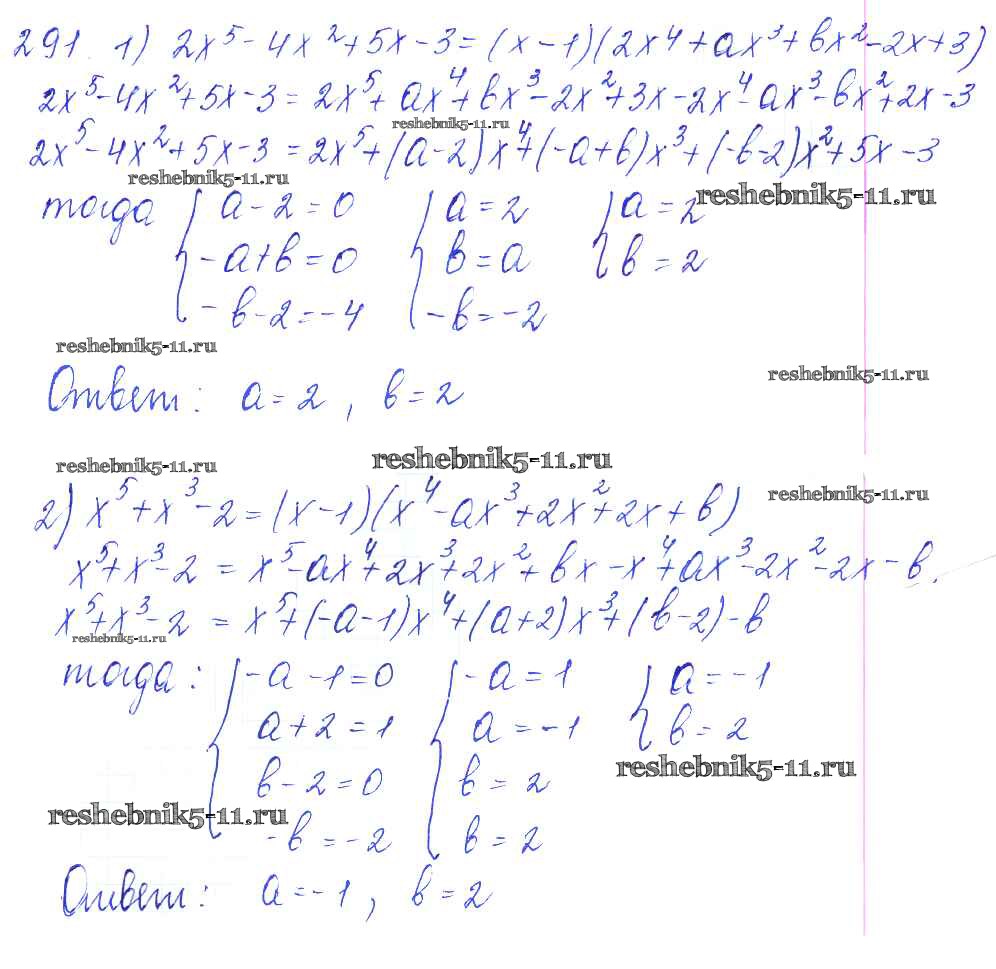 291. 1) 2x⁵ - 4x² + 5x - 3 = (x - 1)(2x⁴ + ax³ + bx² - 2x + 3)
2x⁵ - 4x² + 5x - 3 = 2x⁵ + ax⁴ + bx³ - 2x² + 3x - 2x⁴ - ax³ - bx² + 2x - 3
reshebnik5-11.ru
2x⁵ - 4x² + 5x - 3 = 2x⁵ + (a - 2)x⁴ + (-a + b)x³ + (-b - 2)x² + 5x - 3
reshebnik5-11.ru
reshebnik5-11.ru
тогда { a - 2 = 0 { a = 2 { a = 2
-a + b = 0 b = a b = 2
-b - 2 = -4 -b = -2
reshebnik5-11.ru
reshebnik5-11.ru
Ответ: a = 2, b = 2
reshebnik5-11.ru
reshebnik5-11.ru
reshebnik5-11.ru
2) x⁵ + x³ - 2 = (x - 1)(x⁴ - ax³ + 2x² + 2x + b)
x⁵ + x³ - 2 = x⁵ - ax⁴ + 2x³ + 2x² + bx - x⁴ + ax³ - 2x² - 2x - b.
x⁵ + x³ - 2 = x⁵ + (-a - 1)x⁴ + (a + 2)x³ + (b - 2) - b
reshebnik5-11.ru
тогда: { -a - 1 = 0 { -a = 1 { a = -1
a + 2 = 1 a = -1 b = 2
reshebnik5-11.ru
b - 2 = 0 b = 2
reshebnik5-11.ru
-b = -2 b = 2
Ответ: a = -1, b = 2